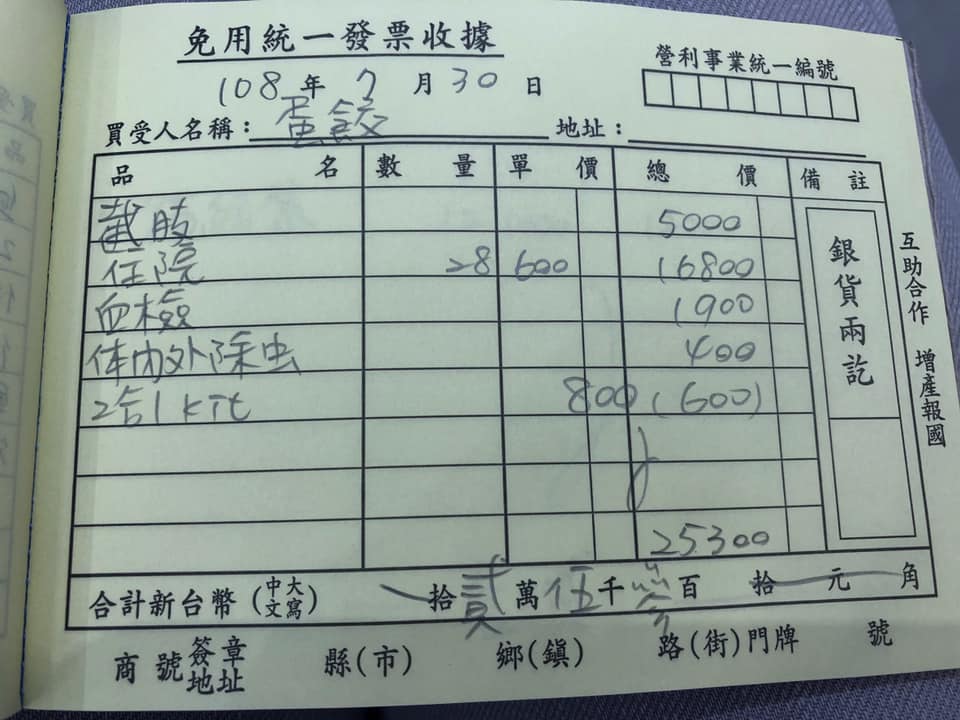 免用統一發票收據
營利事業統一編號
108年 7月30日
買受人名稱：蛋餃 地址：
品名 數量 單價 總價 備註
5000
住院 28 600 16800
血檢 1900
体內外除虫 400
2合1 kit 800 (600)
25300
銀貨兩訖
互助合作 增產報國
合計新台幣(中文大寫) 拾貳萬伍千參百拾元角
商號簽章地址 縣(市) 鄉(鎮) 路(街)門牌 號